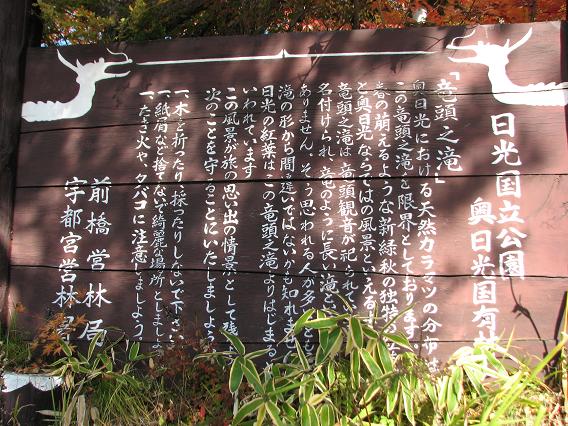 日光国立公園
奥日光国有林
「竜頭之滝」
奥日光における天然カラマツの分布
この竜頭之滝を限界としております
春の萌えるような新緑秋の独特の
と奥日光ならではの風景といえる
竜頭之滝は竜頭観音が祀られ
名付けられ、竜のように長い滝と
ありません。そう思われる人が多
滝の形から間違いではないかも知れませ
日光の紅葉はこの竜頭之滝よりはじまる
いわれています
この風景が旅の思い出の情景として残
次のことを守ることにいたしましょう
一、木を折ったり、採ったりしないで下さい
一、紙屑など捨てないで綺麗な場所としましょ
一、たき火や、タバコに注意しましょう
前橋営林局
宇都宮営林署